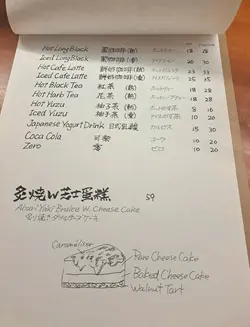 Hot Long Black 黑咖啡(熱) 18 28
Iced Long Black 黑咖啡(凍) 20 30
Hot Cafe Latte 鮮奶咖啡(熱) 23 33
Iced Cafe Latte 鮮奶咖啡(凍) 25 35
Hot Black Tea 紅茶(熱) 18 28
Hot Harb Tea 花茶(熱) 18 28
Hot Yuzu 柚子茶(熱) 10 20
Iced Yuzu 柚子茶(凍) 10 20
Japanese Yogurt Drink 日式乳酸 カルピス 10 20
Coca Cola 可樂 コーラ 10 20
Zero 零 ゼロ 10 20
炙燒W芝士蛋糕 59
Aburi Yaki Brulee W. Cheese Cake
炙り焼きダブルチーズケーキ
Caramelizer
Rare Cheese Cake
Baked Cheese Cake
Walnut Tart